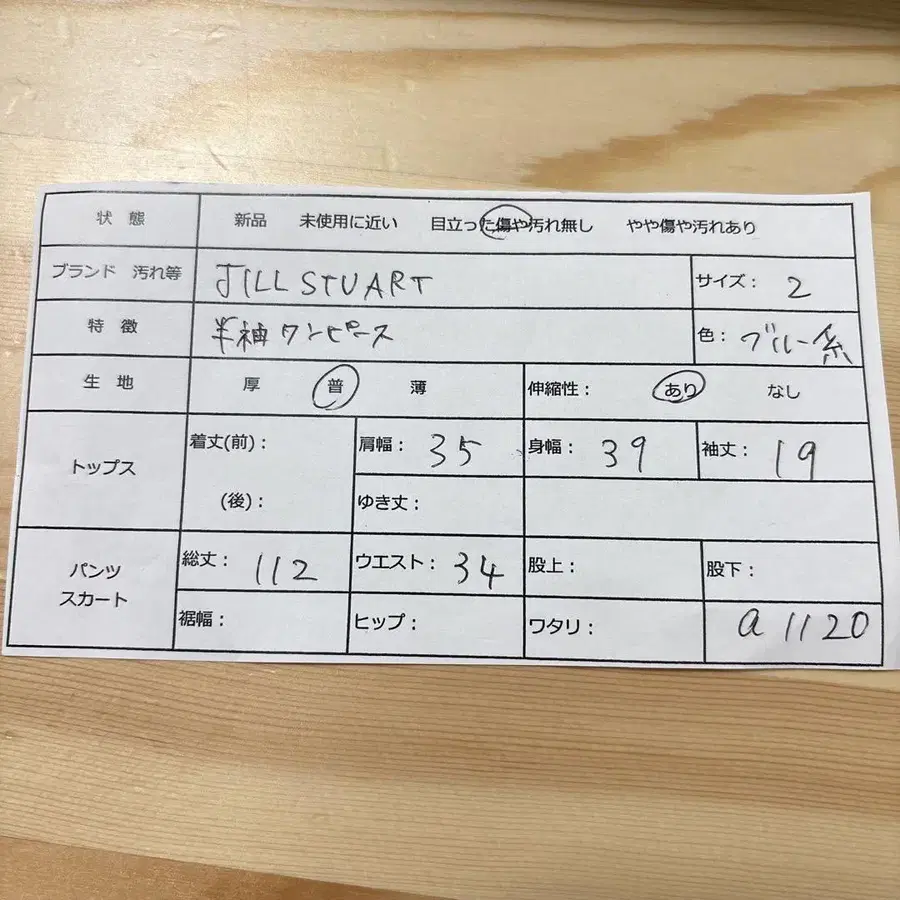 状 態 新品 未使用に近い 目立った傷や汚れ無し やや傷や汚れあり
ブランド 汚れ等 JILL STUART サイズ： 2
特 徴 半袖ワンピース 色： ブルー系
生 地 厚 普 薄 伸縮性： あり なし
トップス 着丈(前)： 肩幅： 35 身幅： 39 袖丈： 19
(後)： ゆき丈：
パンツ スカート 総丈： 112 ウエスト： 34 股上： 股下：
裾幅： ヒップ： ワタリ： a 1120